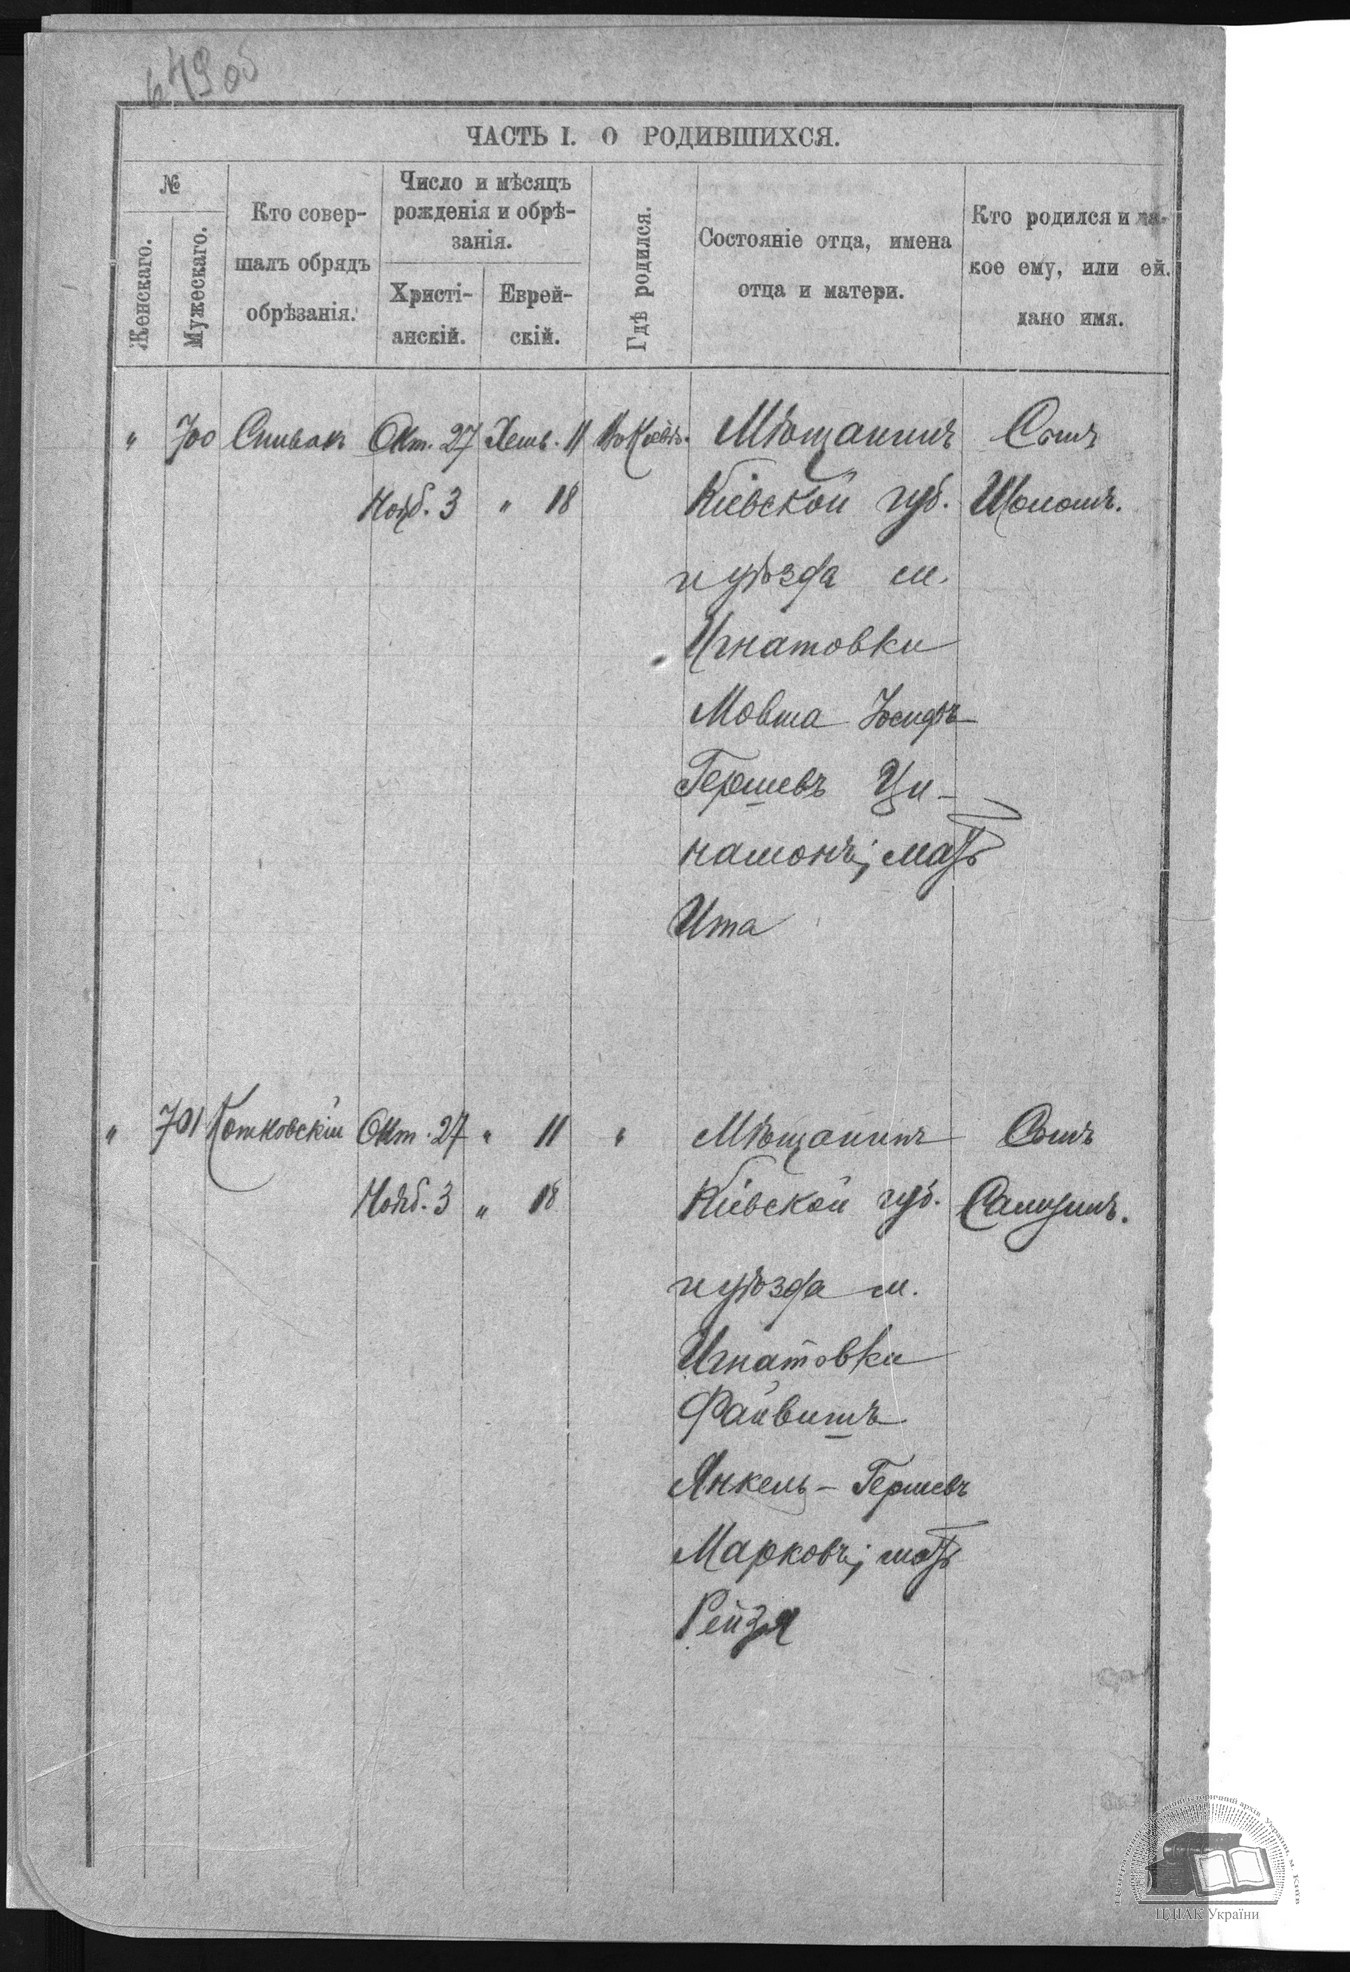 649об
ЧАСТЬ I. О РОДИВШИХСЯ.
№
Женскаго.
Мужескаго.
Кто совер-
шалъ обрядъ
обрѣзанія.
Число и мѣсяцъ
рожденія и обрѣ-
занія.
Христі-
анскій.
Еврей-
скій.
Гдѣ родился.
Состояніе отца, имена
отца и матери.
Кто родился и ка-
кое ему, или ей.
дано имя.
" 700 Спивакъ Окт. 27 Хешв. 11 Въ Кіевѣ. Мѣщанинъ Сынъ
Нояб. 3 " 18 Кіевской губ. Шоломъ.
и уѣзда м.
Игнатовки
Мовша Іосифъ
Гершевъ Ци-
намонъ; мать
Ита
" 701 Котковскій Окт. 27 " 11 " Мѣщанинъ Сынъ
Нояб. 3 " 18 Кіевской губ. Самуилъ.
и уѣзда м.
Игнатовки
Файвишъ
Янкель-Гершевъ
Марковъ; мать
Рейзя
ЦДІАК України